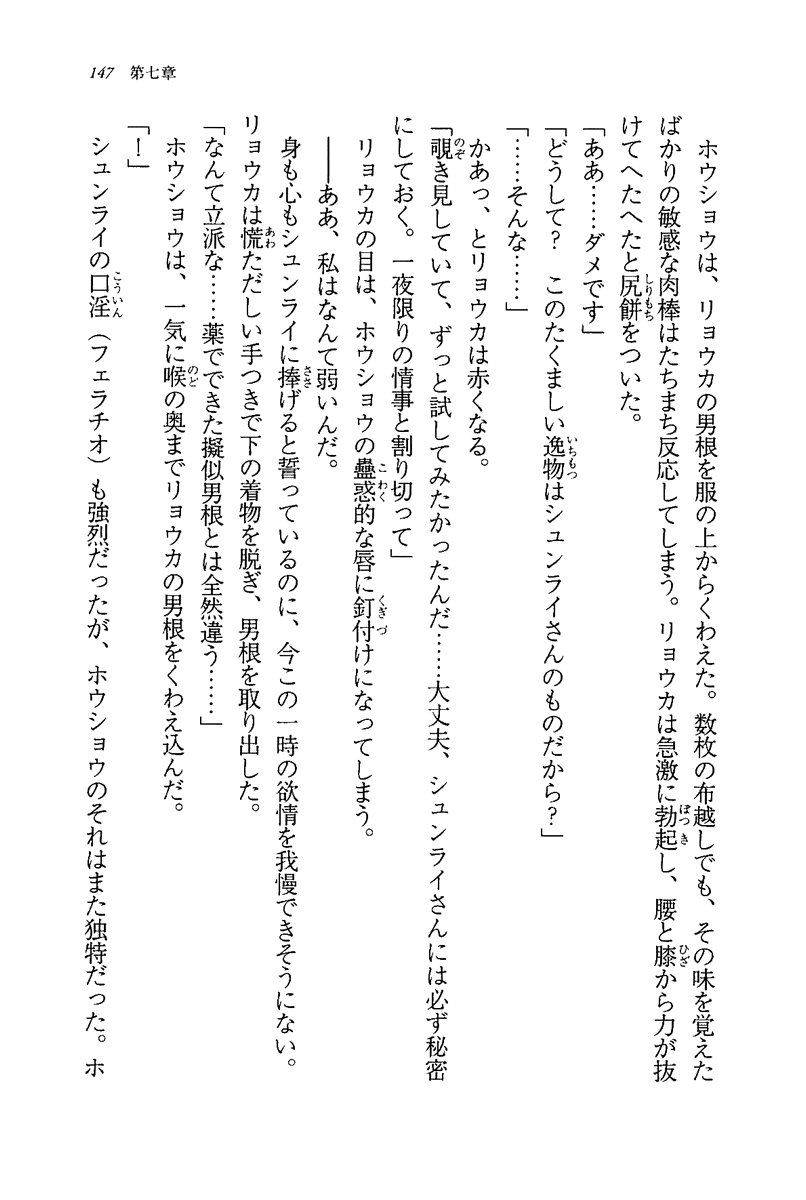 147 第七章
ホウショウは、リョウカの男根を服の上からくわえた。数枚の布越しでも、その味を覚えた
ばかりの敏感な肉棒はたちまち反応してしまう。リョウカは急激に勃起し、腰と膝から力が抜
けてへたへたと尻餅をついた。
「ああ……ダメです」
「どうして？　このたくましい逸物はシュンライさんのものだから？」
「……そんな……」
かあっ、とリョウカは赤くなる。
「覗き見していて、ずっと試してみたかったんだ……大丈夫、シュンライさんには必ず秘密
にしておく。一夜限りの情事と割り切って」
リョウカの目は、ホウショウの蠱惑的な唇に釘付けになってしまう。
――ああ、私はなんて弱いんだ。
身も心もシュンライに捧げると誓っているのに、今この一時の欲情を我慢できそうにない。
リョウカは慌ただしい手つきで下の着物を脱ぎ、男根を取り出した。
「なんて立派な……薬でできた擬似男根とは全然違う……」
ホウショウは、一気に喉の奥までリョウカの男根をくわえ込んだ。
「！」
シュンライの口淫（フェラチオ）も強烈だったが、ホウショウのそれはまた独特だった。ホ